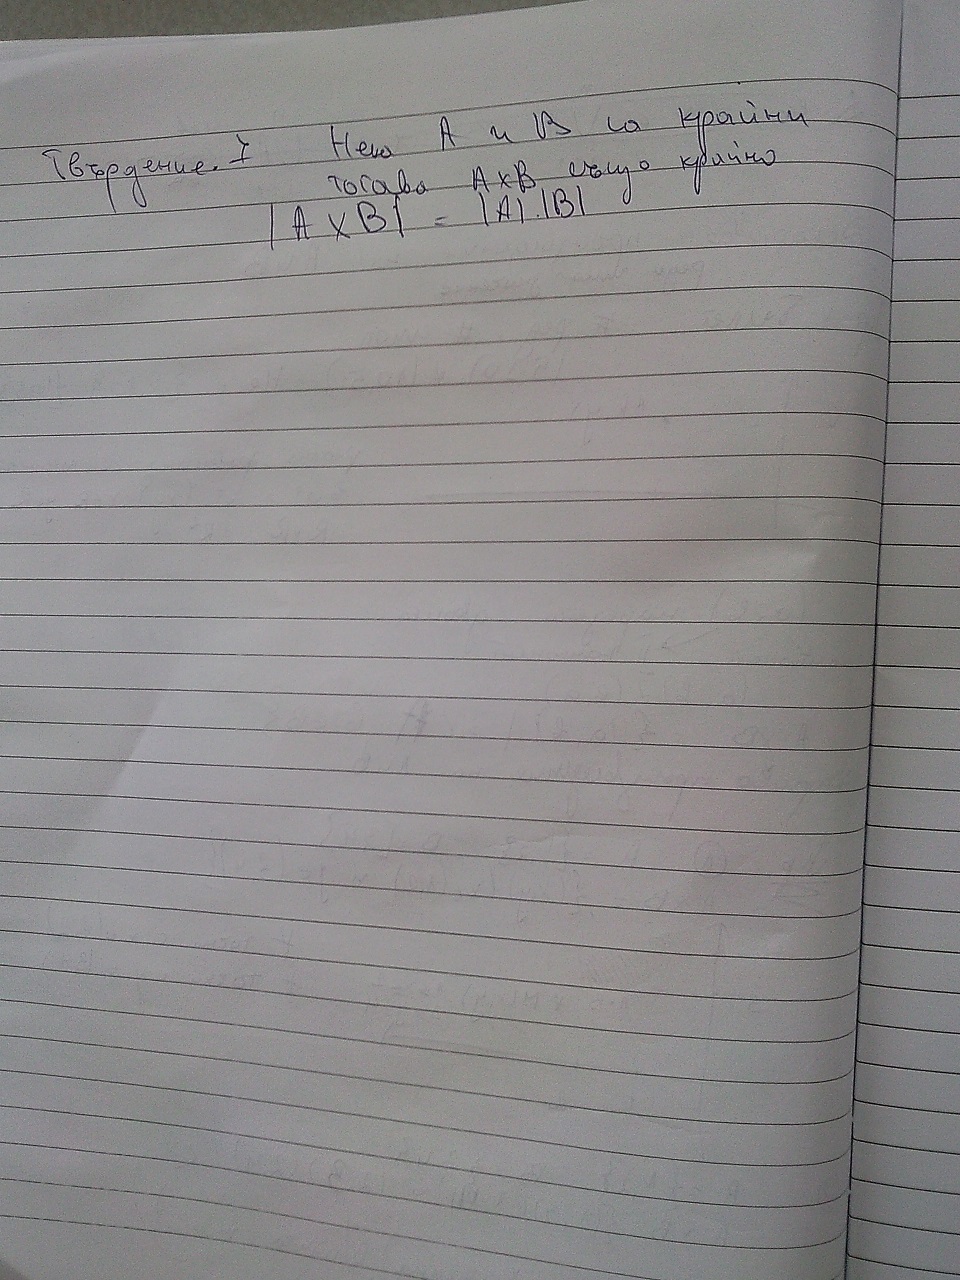 Твърдение. I Нека A и B са крайни
тогава A×B също крайно
|A×B| = |A|.|B|